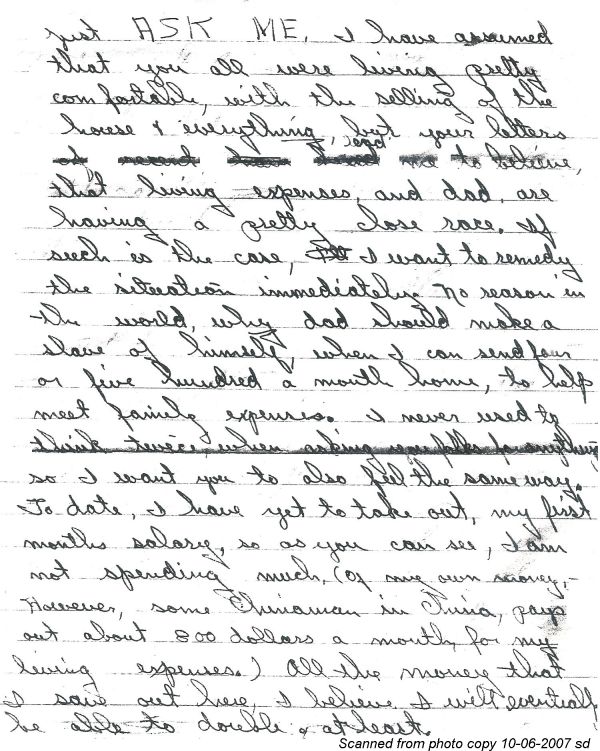 just ASK ME. I have assumed
that you all were living pretty
comfortable, with the selling of the
house & everything, but your letters
of recent have lead me to believe,
that living expenses, and dad, are
having a pretty close race. If
such is the case, I want to remedy
the situation immediately. No reason in
the world, why dad should make a
slave of himself, when I can send four
or five hundred a month home, to help
meet family expenses. I never used to
think twice when asking you folks for anything
so I want you to also feel the same way.
To date, I have yet to take out, my first
months salary, so as you can see, I am
not spending much, (of my own money,-
However, some Chinaman in China, pays
out about 800 dollars a month, for my
living expenses.) All the money that
I save out here, I believe I will eventually
be able to double, at least.
Scanned from photo copy 10-06-2007 sd